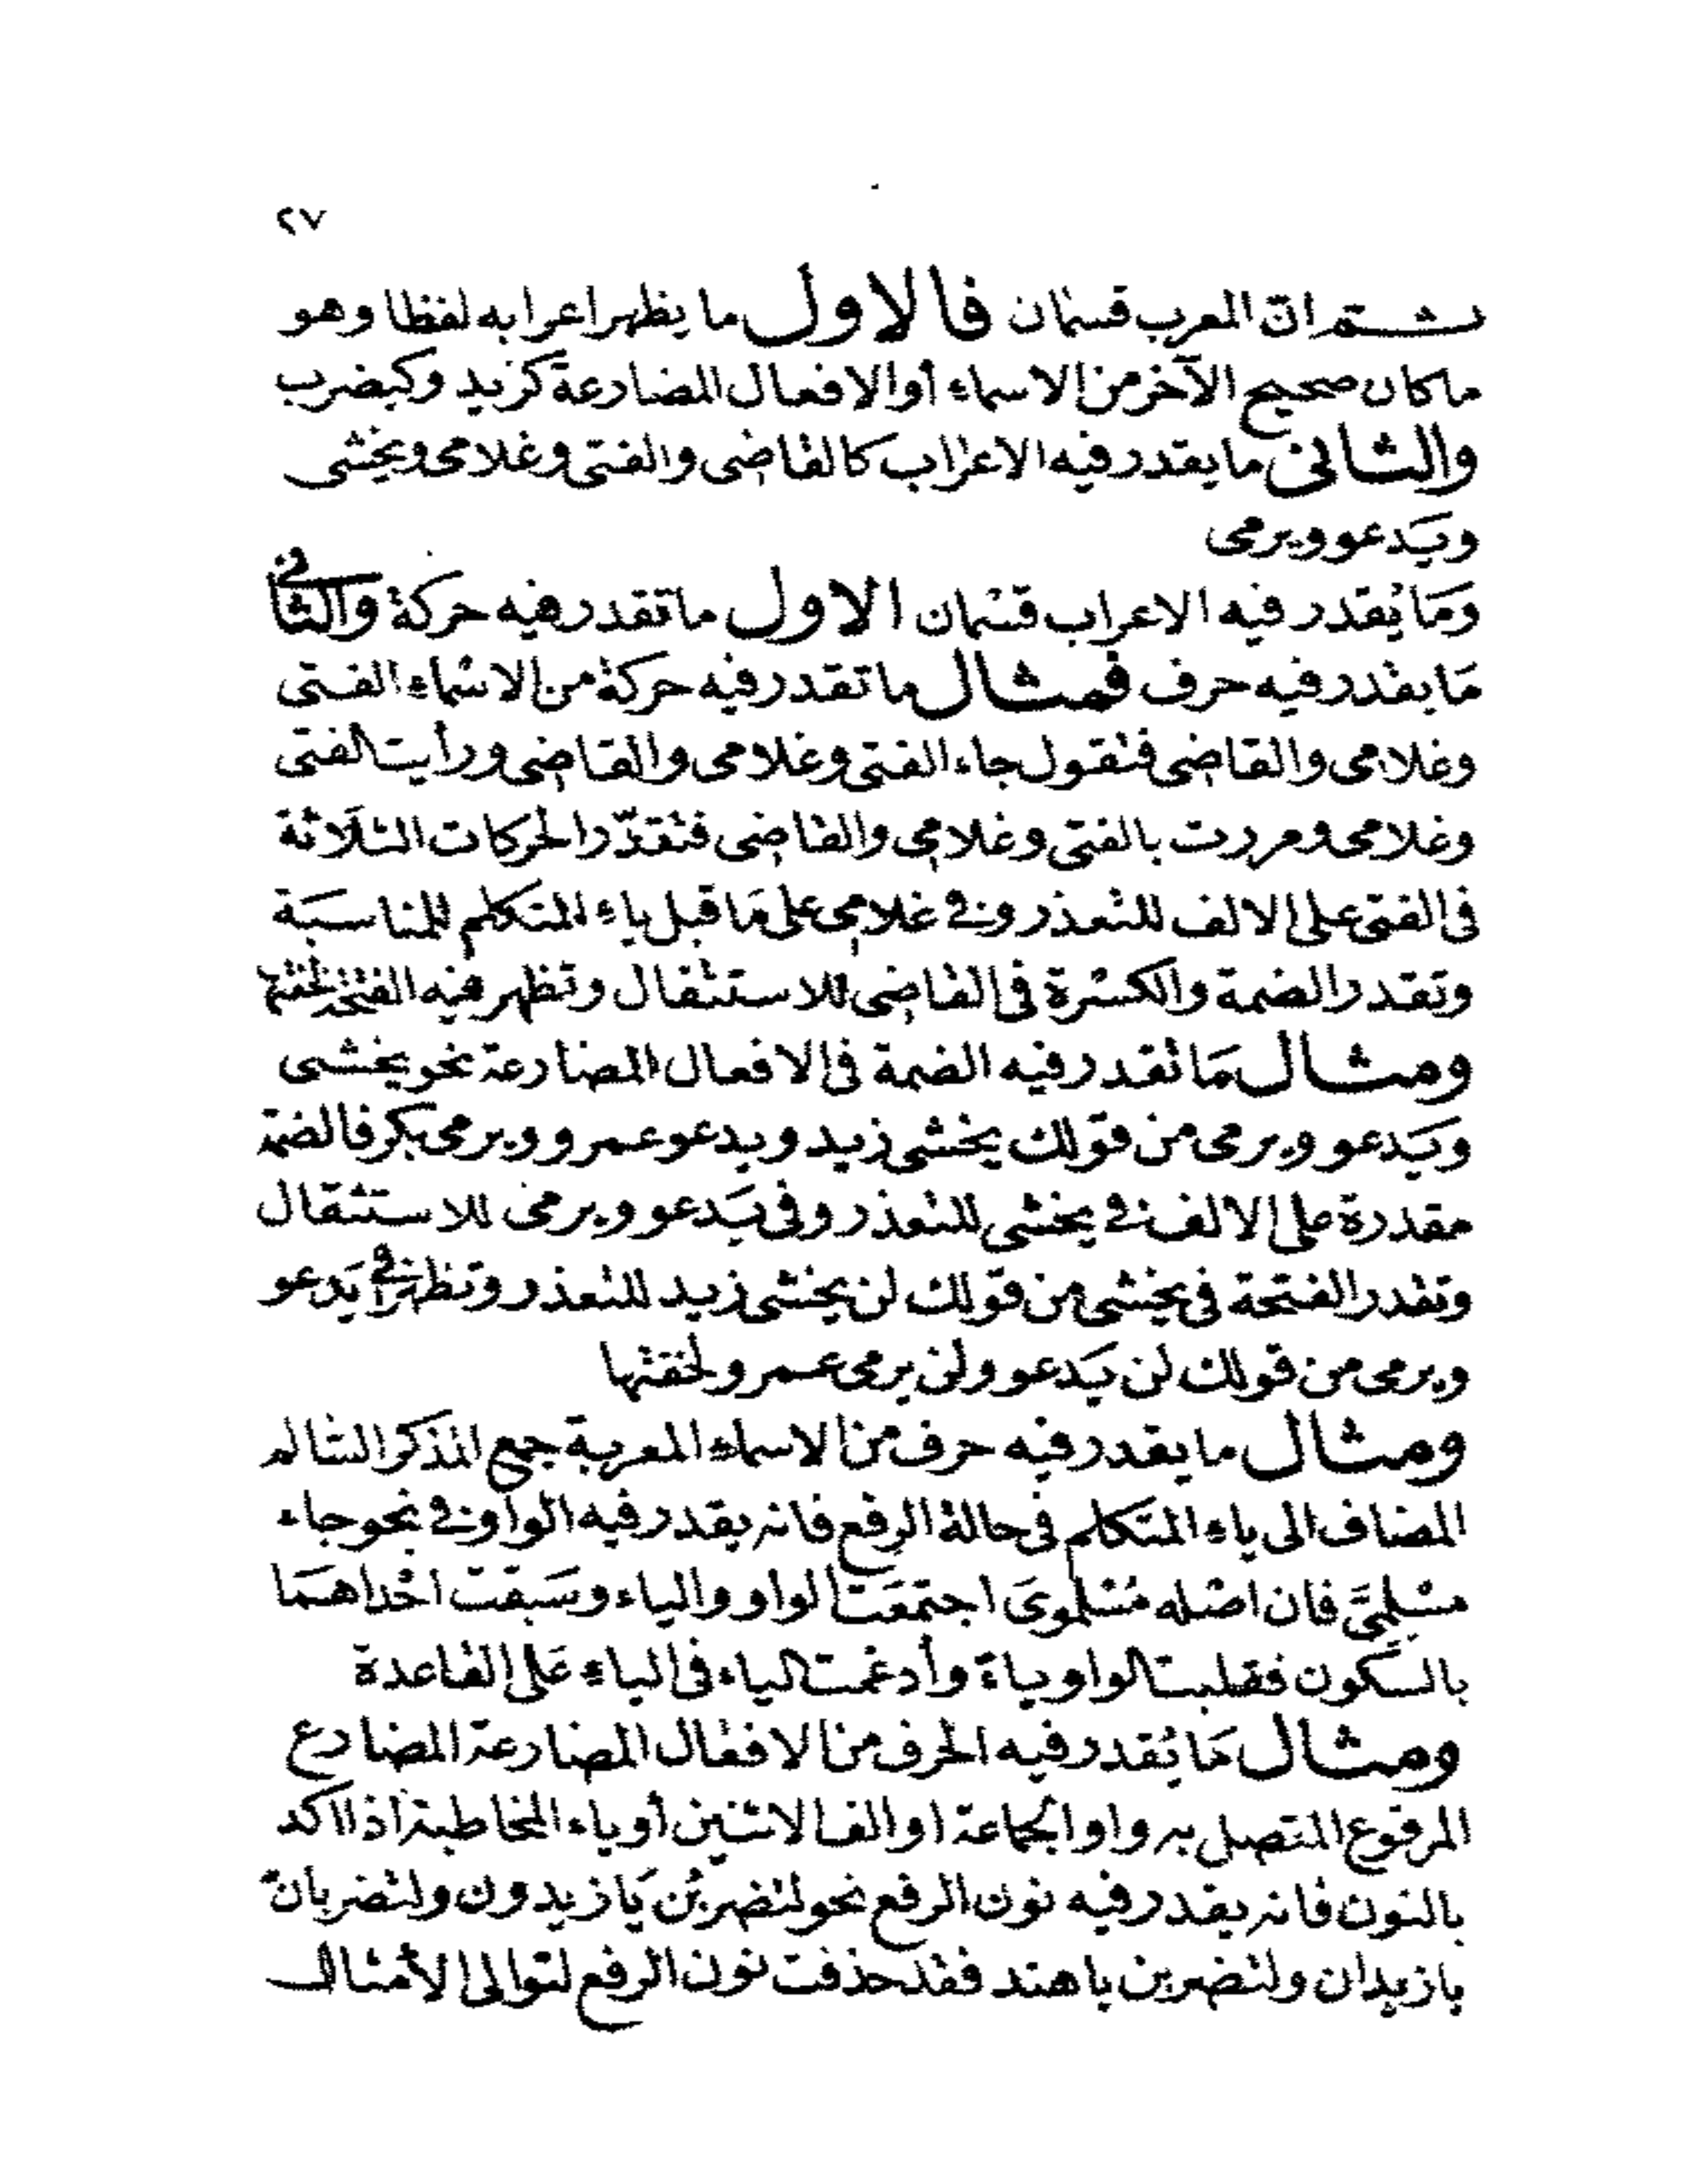 ٢٧
ثم ان المعرب قسمان فالاول ما يظهر اعرابه لفظا وهو
ما كان صحيح الآخر من الاسماء أو الافعال المضارعة كزيد وكيضرب
والثانى ما يقدر فيه الاعراب كالقاضى والفتى وغلامى ويخشى
ويَدعو ويرمى
وَمَا يُقدر فيه الاعراب قسمان الاول ما تقدر فيه حركة والثانى
مَا يقدر فيه حرف فمثال ما تقدر فيه حركة من الاسماء الفتى
وغلامى والقاضى فتقول جاء الفتى وغلامى والقاضى ورأيت الفتى
وغلامى ومررت بالفتى وغلامى والقاضى فتقدّر الحركات الثلاثة
فى الفتى على الالف للتعذر وفى غلامى على مَا قبل ياء المتكلم للمناسبَة
وتقدر الضمة والكسرة فى القاضى للاستثقال وتظهر فيه الفتحة لخفتها
ومثال مَا تقدر فيه الضمة فى الافعال المضارعة نحو يخشى
ويَدعو ويرمى من قولك يخشى زيد ويدعو عمرو ويرمى بكر فالضمة
مقدرة على الالف فى يخشى للتعذر وفى يَدعو ويرمى للاستثقال
وتقدر الفتحة فى يخشى من قولك لن يخشى زيد للتعذر وتظهر فى يَدعو
ويرمى من قولك لن يَدعو ولن يرمى عمرو لخفتها
ومثال ما يقدر فيه حرف من الاسماء المعربة جمع المذكر السالم
المضاف الى ياء المتكلم فى حالة الرفع فانه يقدر فيه الواو فى نحو جاء
مسلمىَّ فان اصله مُسْلموىَ اجتمعَت الواو والياء وسَبقت احداهمَا
بالسكون فقلبت الواو ياءً وأدغمت الياء فى الياءِ عَلى القاعدة
ومثال مَا يُقدر فيه الحرف من الافعال المضارعة المضارع
المرفوع المتصل به واو الجماعة او الف الاثنين أو ياء المخاطبة اذا اكد
بالنون فانه يقدر فيه نون الرفع نحو لتضربُن يَا زيدون ولتضربانّ
يا زيدان ولتضربن يا هند فقد حذفت نون الرفع لتوالى الأمثال